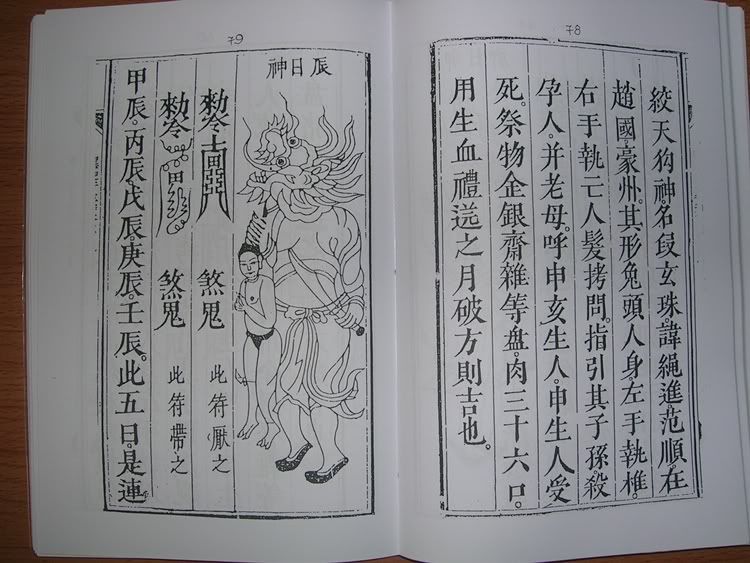 78
絞天狗神。名段玄珠。諱繩進范順。在
趙國豪州。其形兔頭人身。左手執椎。
右手執亡人髮拷問。指引其子孫。殺
孕人。并老母。呼申亥生人。申生人受
死。祭物金銀齋雜等盤。肉三十六口。
用生血禮送之月破方則吉也。
79
辰日神
勅令 煞鬼 此符厭之
勅令 煞鬼 此符帶之
甲辰。丙辰。戊辰。庚辰。壬辰。此五日。是連